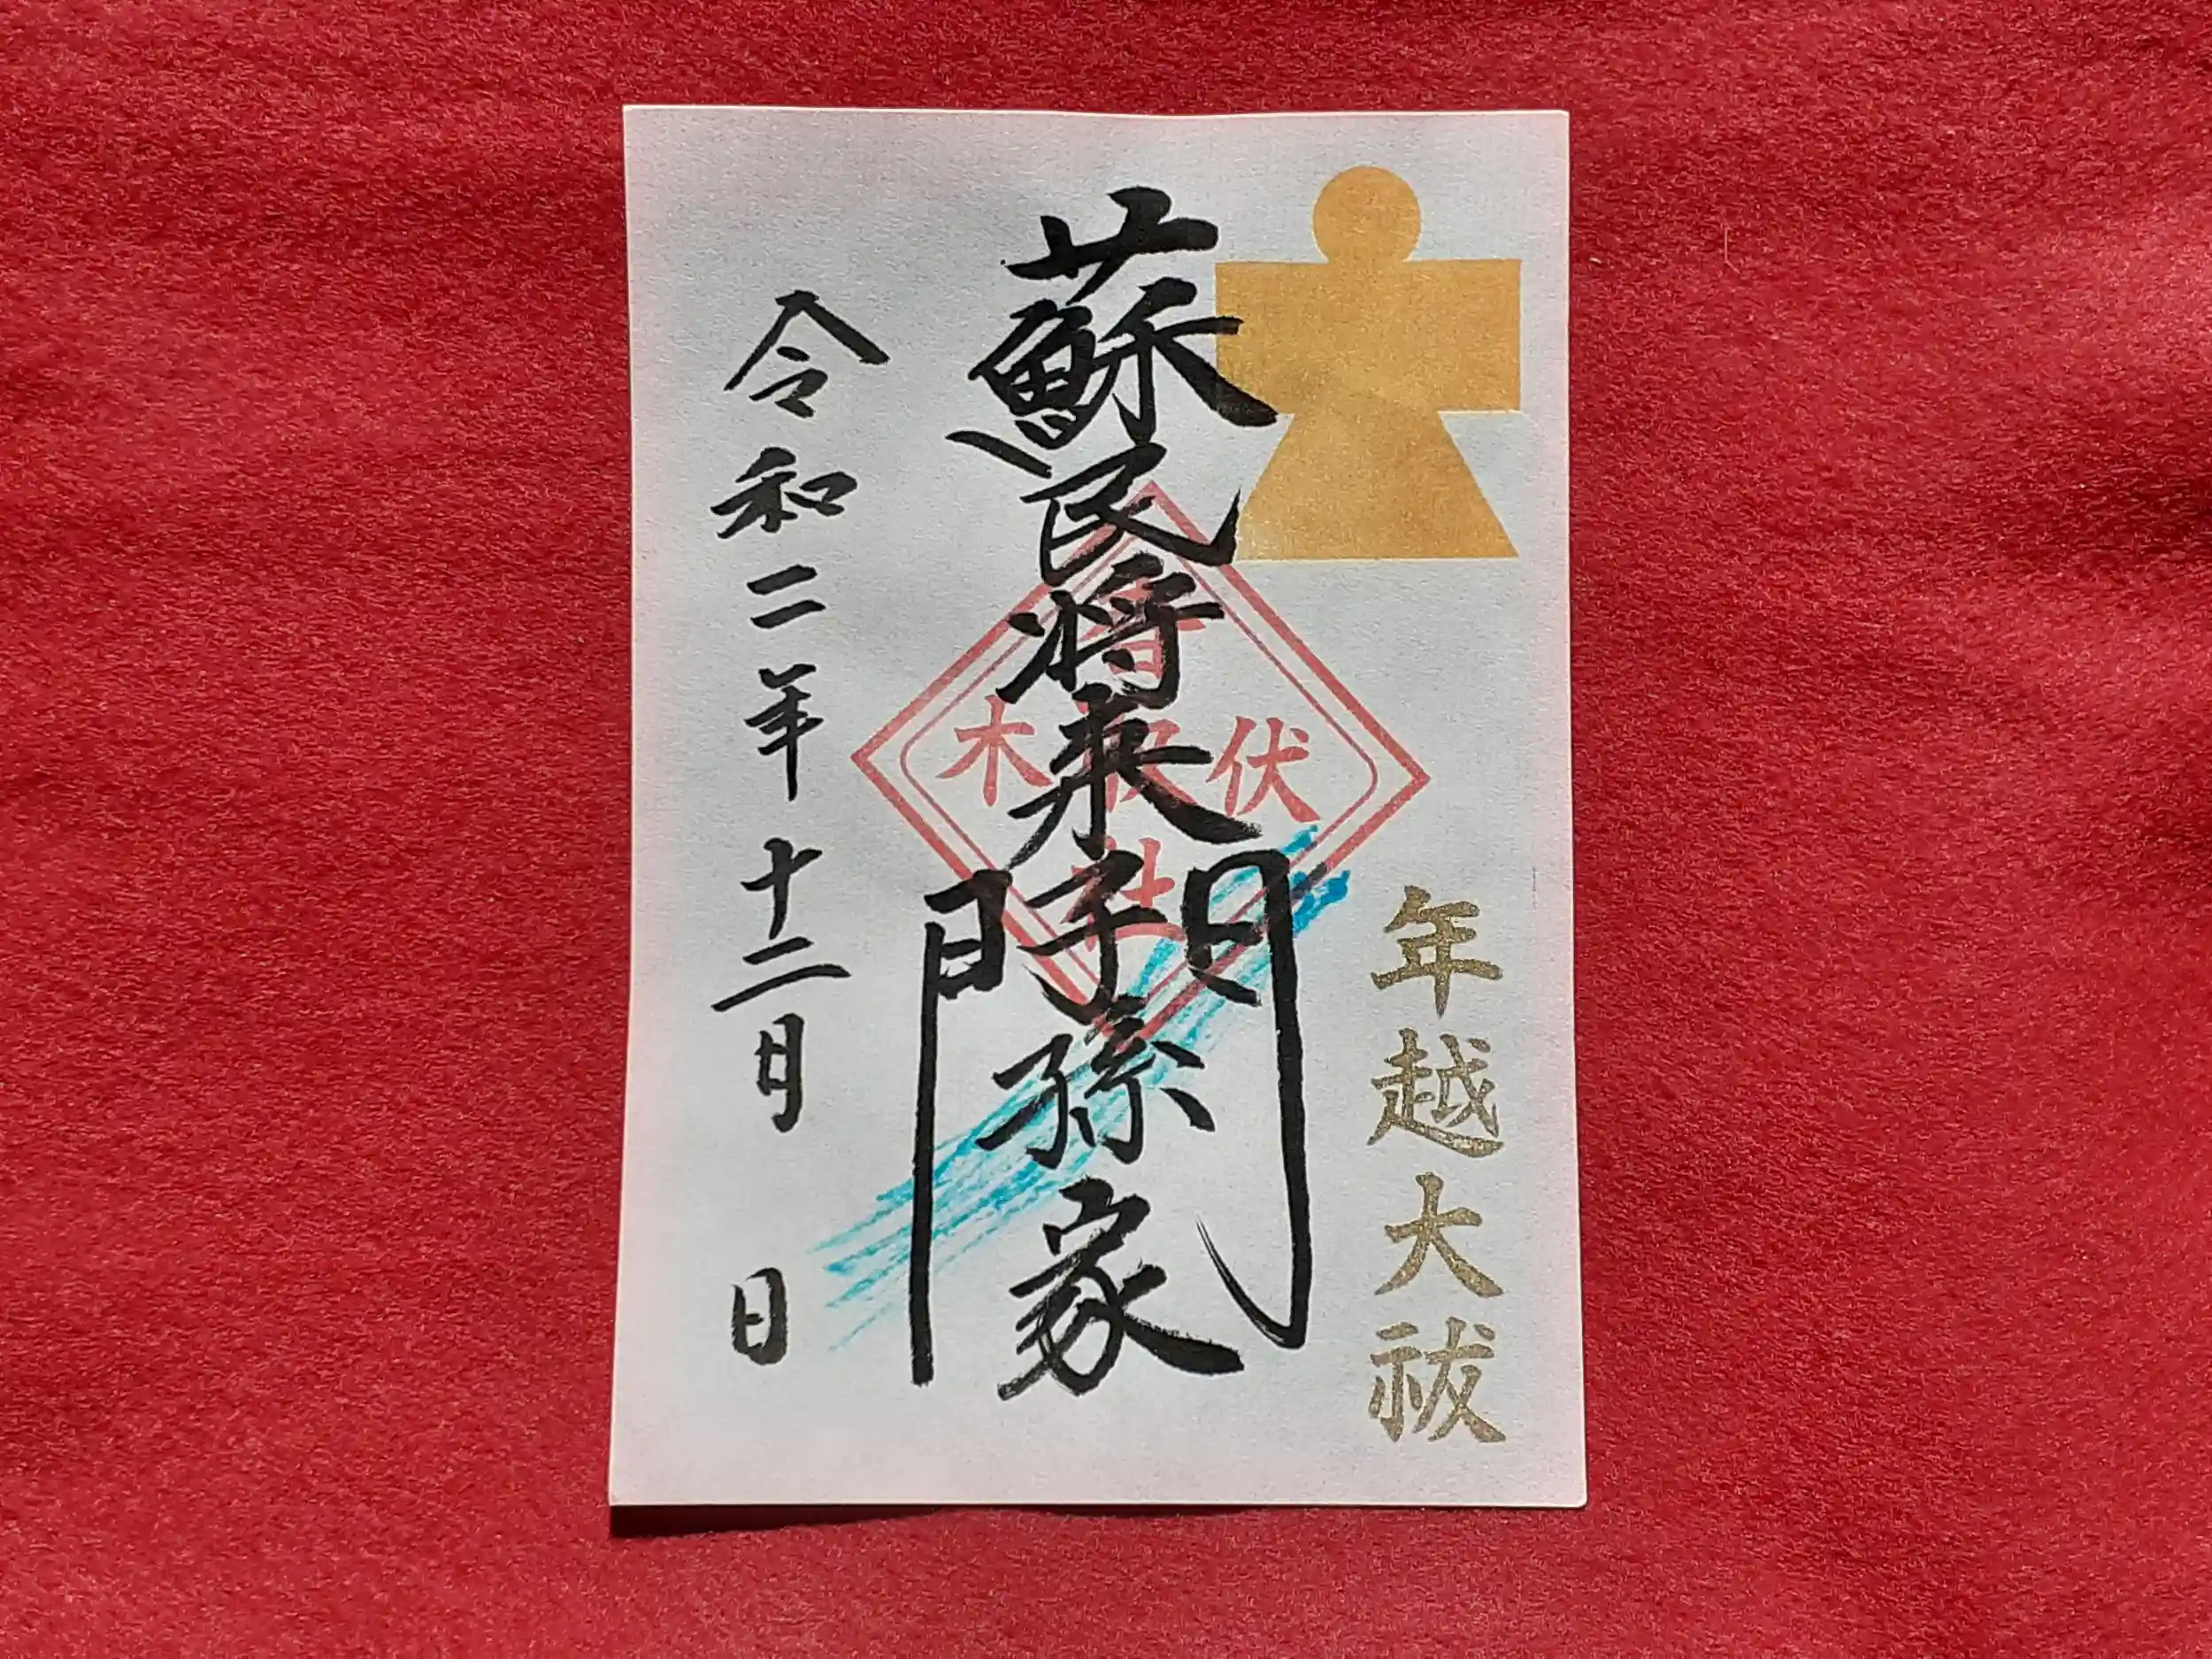 年越大祓
蘇民将来子孫家門
伏木
令和二年十二月 日